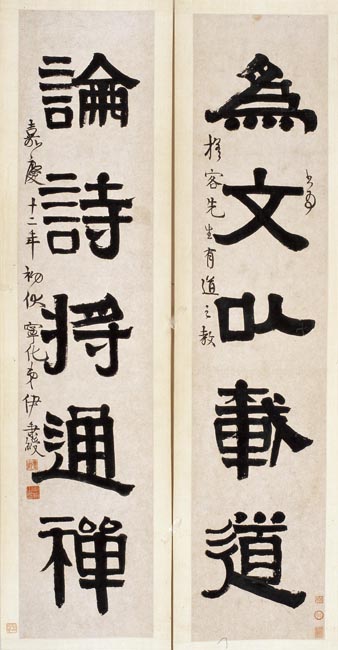 為文以載道
客先生有道之教
論詩將通禪
嘉慶十二年初伏寧化弟伊秉綬